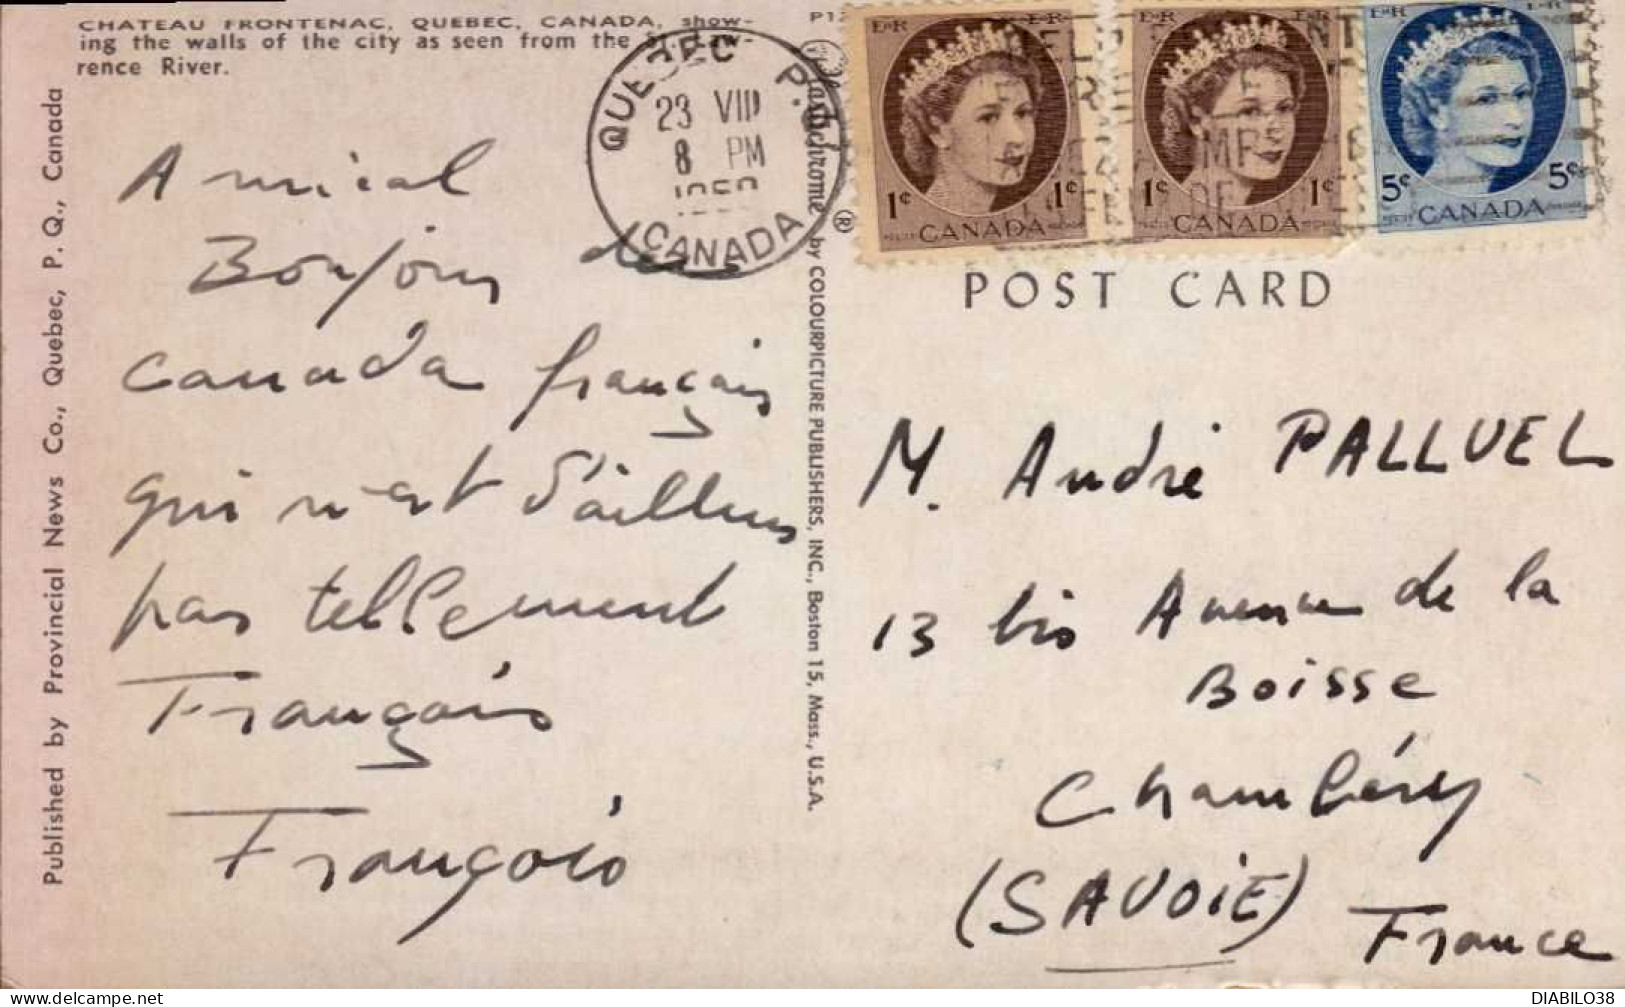 CHATEAU FRONTENAC, QUEBEC, CANADA, show-
ing the walls of the city as seen from the St. Law-
rence River.
Published by Provincial News Co., Quebec, P. Q., Canada
Amical
Bonjour du
Canada français
qui n'est d'ailleurs
pas tellement
Français
François
QUEBEC P.Q.
23 VIII
8 PM
CANADA
Plastichrome ® by COLOURPICTURE PUBLISHERS, INC., Boston 15, Mass., U.S.A.
E II R E II R
1¢ 1¢
CANADA
E II R E II R
1¢ 1¢
CANADA
E II R E II R
5¢ 5¢
CANADA
POST CARD
M. André PALLUEL
13 bis Avenue de la
Boisse
Chambéry
(SAVOIE) France
DIABILO38